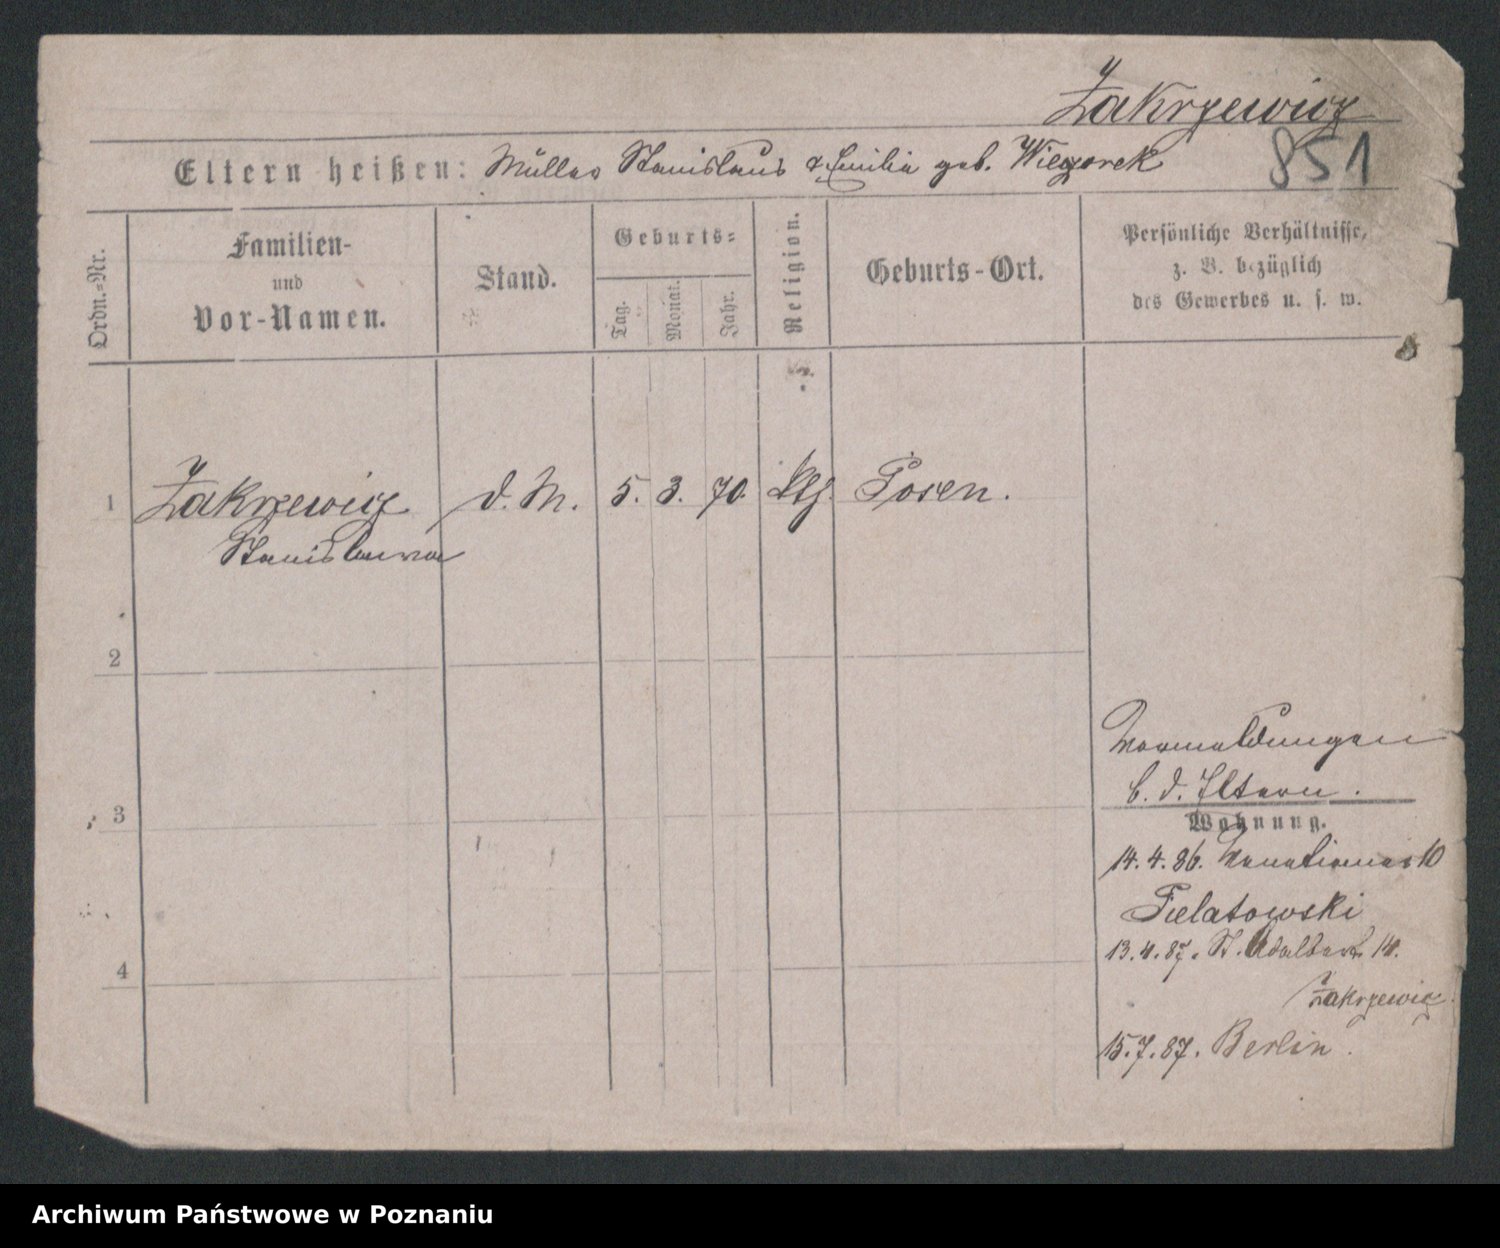 Zakrzewicz
Eltern heißen: Müller Stanislaus & Emilia geb. Wieczorek
851
Ordn.-Nr.
Familien-
und
Vor-Namen.
Stand.
Geburts-
Tag.
Monat.
Jahr.
Religion.
Geburts-Ort.
Persönliche Verhältnisse,
z. B. bezüglich
des Gewerbes u. s. w.
1 Zakrzewicz d. M. 5. 3. 70. kth. Posen.
Stanislawa
2
3
4
Vormeldungen
b. d. Eltern.
Wohnung.
14. 4. 86. 10
13. 4. 87. St. Adalbert 14.
Zakrzewicz
15. 7. 87. Berlin.
Archiwum Państwowe w Poznaniu